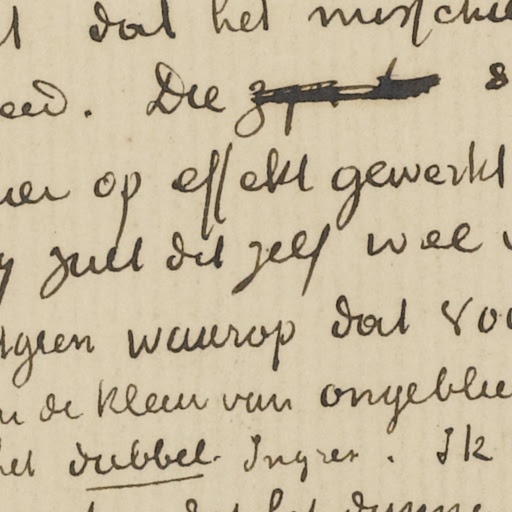 dat het misschie
eed. Die s
op effekt gewerkt
zult dit zelf wel
tgeen waarop dat voo
de kleur van ongeblee
het dubbel Ingres. Ik